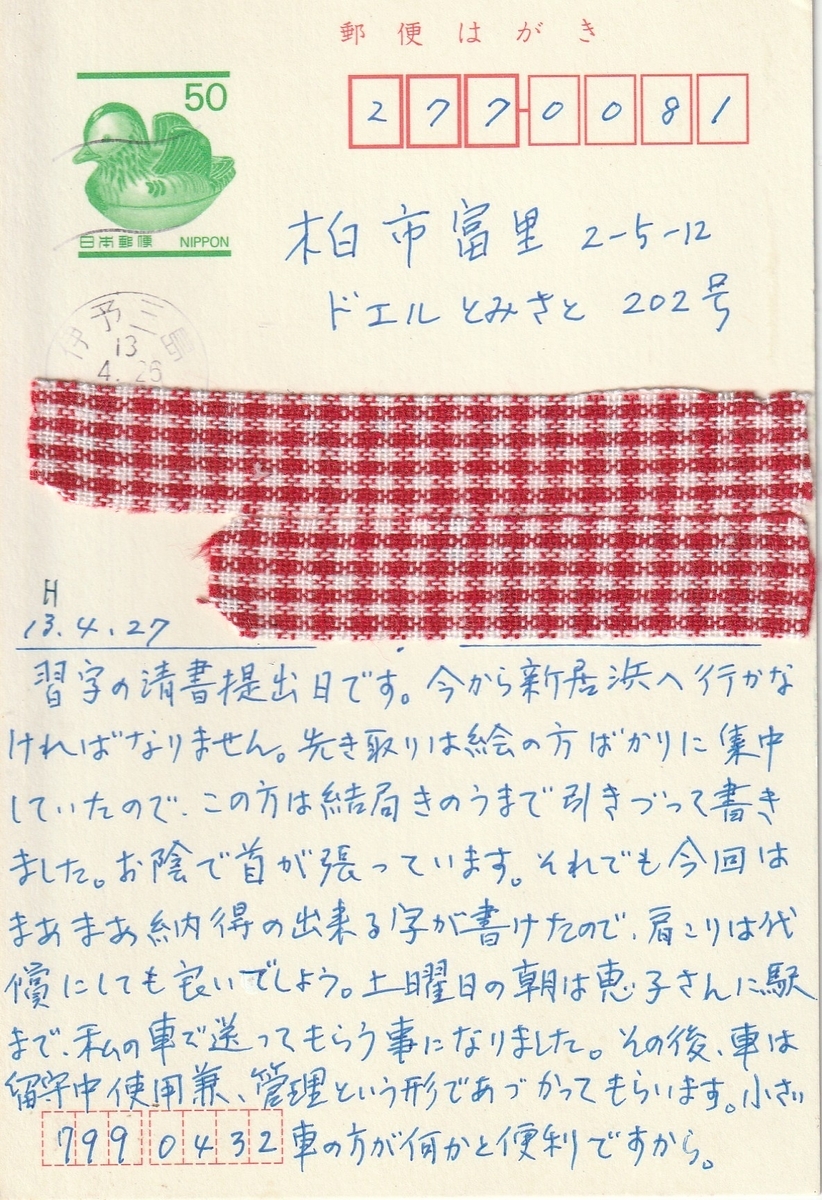 郵便はがき
50
日本郵便 NIPPON
277-0081
柏市富里 2-5-12
ドエルとみさと 202号
伊予三島
13
4.26
H
13.4.27
習字の清書提出日です。今から新居浜へ行かな
ければなりません。先き取りは絵の方ばかりに集中
していたので、この方は結局きのうまで引きづって書き
ました。お陰で首が張っています。それでも今回は
まあまあ納得の出来る字が書けたので、肩こりは代
償にしても良いでしょう。土曜日の朝は恵子さんに駅
まで、私の車で送ってもらう事になりました。その後、車は
留守中使用兼、管理という形であづかってもらいます。小さい
車の方が何かと便利ですから。
799 0432